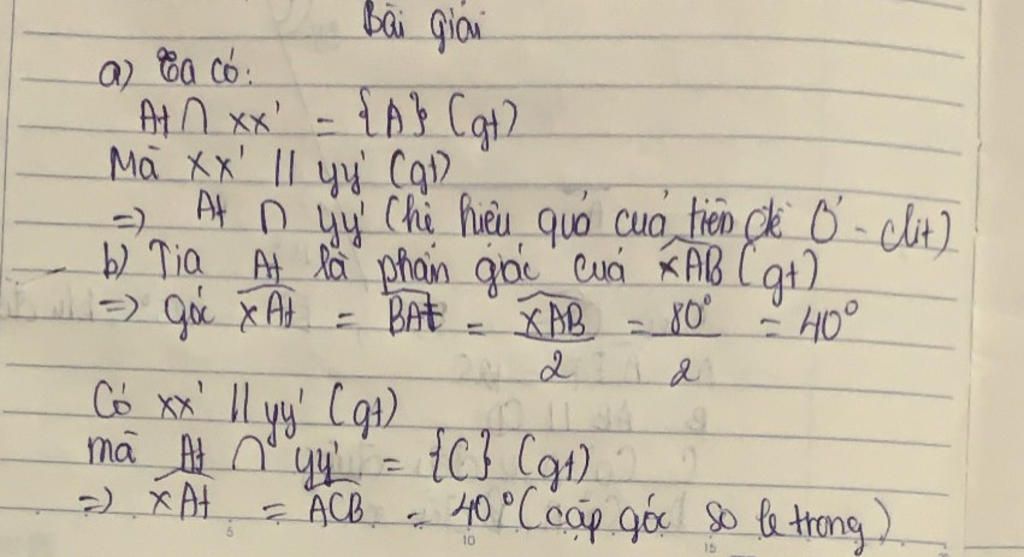 Bài giải
a) Ta có:
At ∩ xx' = {A} (gt)
Mà xx' // yy' (gt)
=> At ∩ yy' (hệ quả của tiên đề Ơ - clit)
b) Tia At là phân giác của xAB (gt)
=> góc xAt = BAt = xAB/2 = 80°/2 = 40°
Có xx' // yy' (gt)
mà At ∩ yy' = {C} (gt)
=> xAt = ACB = 40° (cặp góc so le trong)
5 10 15